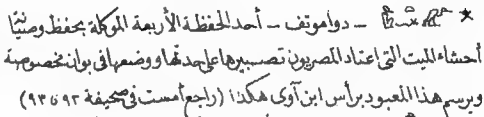 * 𓇼𓄟𓆑 – دواموتف – أحد الحفظة الأربعة الموكلة بحفظ وصيانة
أحشاء الميت التى اعتاد المصريون تصبيرها على حدتها ووضعها فى بوان مخصوصة
ويرسم هذا المعبود برأس ابن آوى هكذا (راجع أمست فى صحيفة ٩٢ و ٩٣)